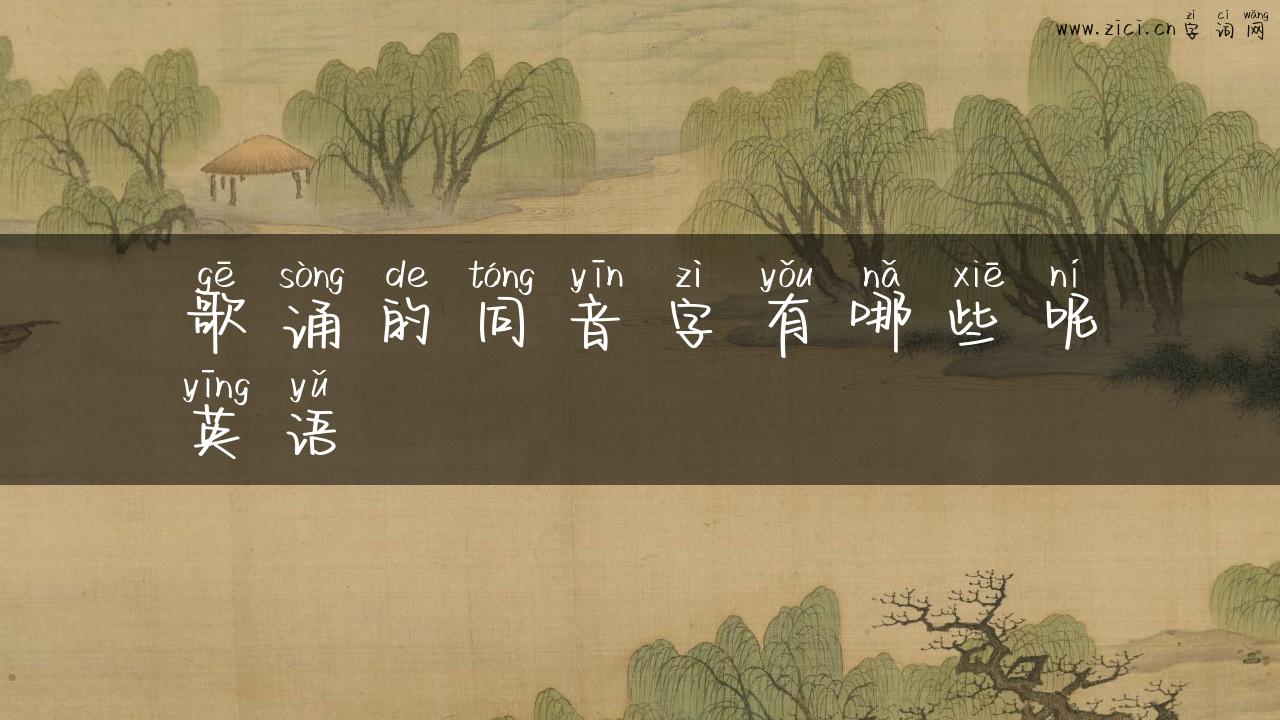 zì cí wǎng
www.zici.cn 字 词 网
gē sòng de tóng yīn zì yǒu nǎ xiē ní
歌 诵 的 同 音 字 有 哪 些 呢
yīng yǔ
英 语